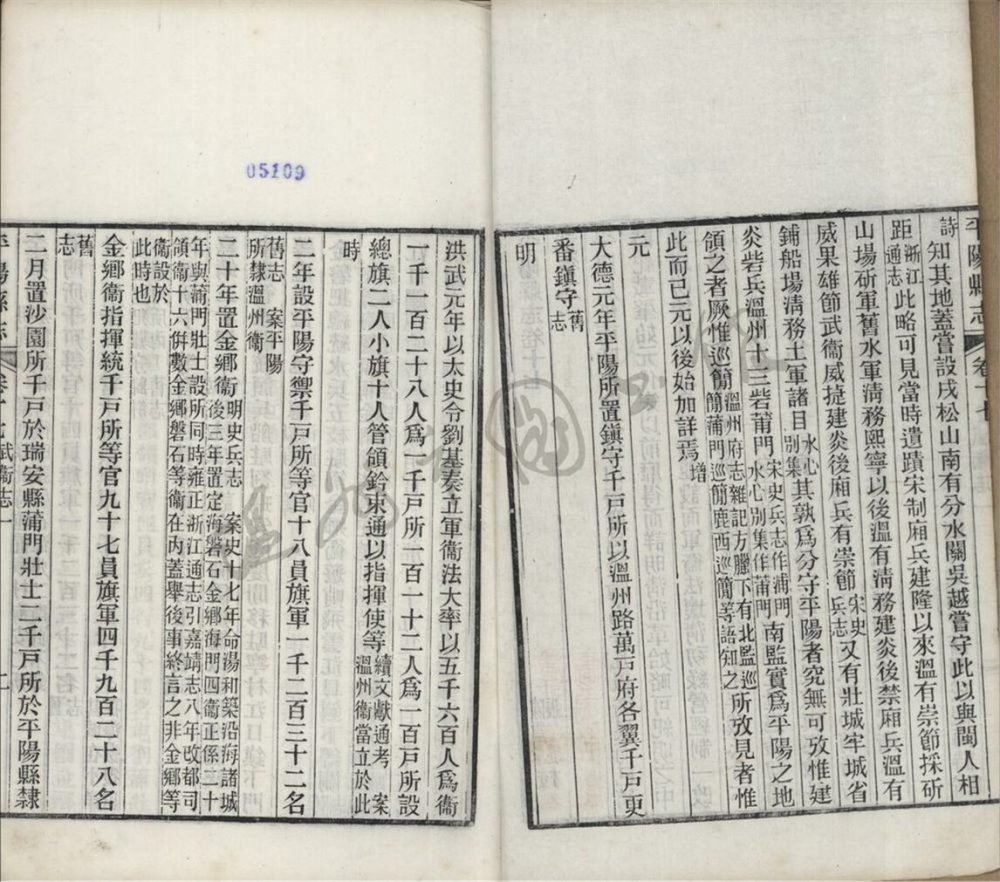 平陽縣志 卷十七
詩知其地蓋嘗設戌松山南有分水關吳越嘗守此以與閩人相
距浙江通志此略可見當時遺蹟宋制廂兵建隆以來溫有崇節採斫
山場斫軍舊水軍淸務熙寧以後溫有淸務建炎後禁廂兵溫有
威果雄節武衞威捷建炎後廂兵有崇節宋史兵志又有壯城牢城省
鋪船場淸務土軍諸目水心別集其孰爲分守平陽者究無可攷惟建
炎砦兵溫州十三砦莆門宋史兵志作浦門水心別集作莆門南監實爲平陽之地
領之者厥惟巡簡溫州府志雜記方臘下有北監巡簡蒲門巡簡鹿西巡簡等語知之所攷見者惟
此而已元以後始加詳焉增
元
大德元年平陽所置鎭守千戸所以溫州路萬戸府各翼千戸更
番鎭守舊志
明
05109
洪武元年以太史令劉基奏立軍衞法大率以五千六百人爲衞
一千一百二十八人爲一千戸所一百一十二人爲一百戸所設
總旗二人小旗十人管領鈐束通以指揮使等續文獻通考 案溫州衞當立於此
時
二年設平陽守禦千戸所等官十八員旗軍一千二百三十二名
舊志 案平陽所隸溫州衞
二十年置金鄕衞明史兵志 案史十七年命湯和築沿海諸城後三年置定海磐石金鄕海門四衞正係二十
年與蒲門壯士設所同時雍正浙江通志引嘉靖志八年改都司領衞十六併數金鄕磐石等衞在內蓋舉後事終言之非金鄕等
衞設於此時也
金鄕衞指揮統千戸所等官九十七員旗軍四千九百二十八名
舊志
二月置沙園所千戸於瑞安縣蒲門壯士二千戸所於平陽縣隸
平陽縣志 卷十七 武衞志一 二